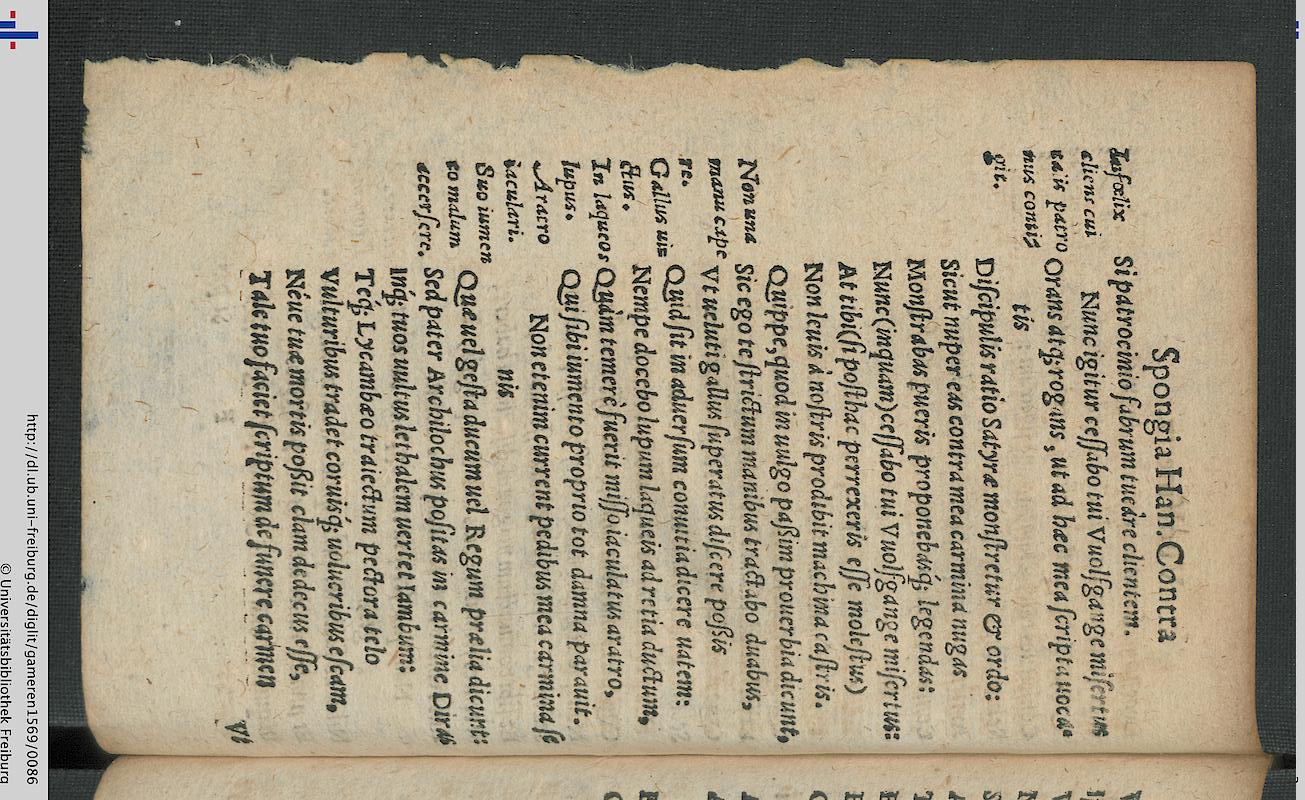 Spongia Han. Contra
Si patrocinio fabrum tueare clientem.
Nunc igitur cessabo tui Vuolfgange misertus
Orans atq; rogans, ut ad hæc mea scripta uoca⸗
tis
Discipulis ratio Satyræ monstretur & ordo:
Sicut nuper eas contra mea carmina nugas
Monstrabas pueris proponebasq́; legendas:
Nunc (inquam) cessabo tui Vuolfgange misertus:
At tibi (si posthac perrexeris esse molestus)
Non leuis à nostris prodibit machina castris.
Quippe, quod in uulgo paßim prouerbia dicunt,
Sic ego te strictum manibus tractabo duabus,
Vt ueluti gallus superatus discere poßis
Quid sit in aduersum conuitia dicere uatem:
Nempe docebo lupum laqueis ad retia ductum,
Quàm temerè fuerit misso iaculatus aratro,
Qui sibi iumento proprio tot damna parauit.
Non etenim current pedibus mea carmina se
nis
Quæ uel gesta ducum uel Regum prælia dicunt:
Sed pater Archilochus positas in carmine Diras
Inq́; tuos uultus lethalem uertet Iambum:
Teq́; Lycambæo traiectum pectora telo
Vulturibus tradet coruisq́; uolucribus escam,
Néue tuæ mortis poßit clam dedecus esse,
Tale tuo faciet scriptum de funere carmen
Vt
Infœlix
cliens cui
patro
nus contiz
git.
Non una
manu cape
re.
Gallus uiz
ctus.
In laqueos
lupus.
Aratro
iaculari.
Suo iumen
to malum
accersere.
http://dl.ub.uni-freiburg.de/diglit/gameren1569/0086
© Universitätsbibliothek Freiburg